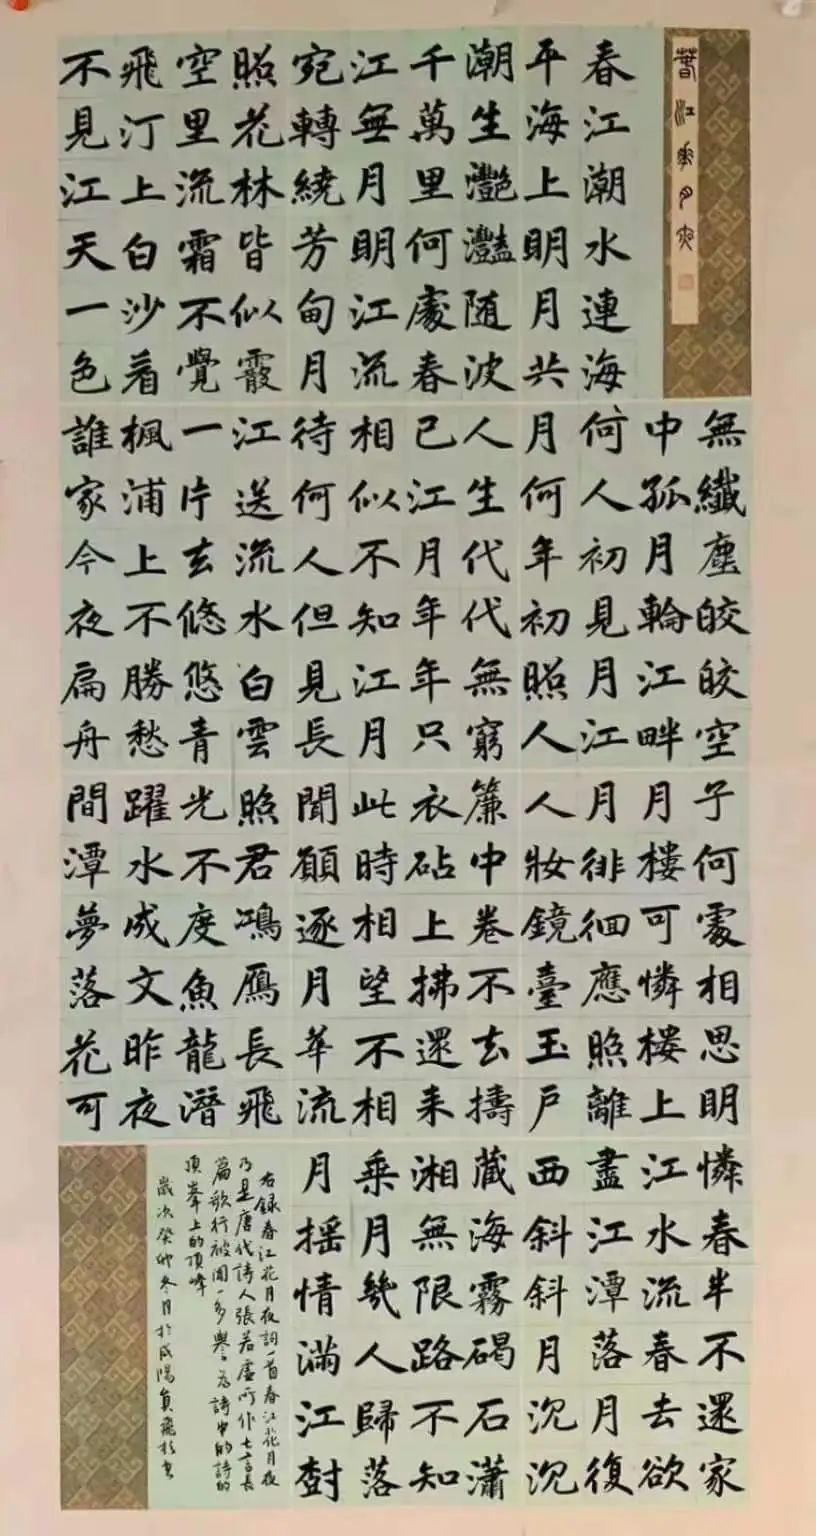 春江花月夜
春江潮水連海
平海上明月共
潮生灩灩随波
千萬里何處春
江無月明江流
宛轉繞芳甸月
照花林皆似霰
空里流霜不覺
飛汀上白沙看
不見江天一色
無纖塵皎皎空
中孤月輪江畔
何人初見月江
月何年初照人
人生代代無窮
已江月年年只
相似不知江月
待何人但見長
江送流水白雲
一片去悠悠青
楓浦上不勝愁
誰家今夜扁舟
子何處相思明
月樓可憐樓上
月徘徊應照離
人妝鏡臺玉戶
簾中卷不去擣
衣砧上拂還来
此時相望不相
聞願逐月華流
照君鴻雁長飛
光不度魚龍潛
躍水成文昨夜
間潭夢落花可
憐春半不還家
江水流春去欲
盡江潭落月復
西斜斜月沉沉
藏海霧碣石瀟
湘無限路不知
乘月幾人歸落
月摇情滿江樹
右録春江花月夜詞一首春江花月夜
乃是唐代詩人張若虛所作七言長
篇歌行被聞一多譽為詩中的詩的
頂峯上的頂峰
歲次癸卯冬月於咸陽